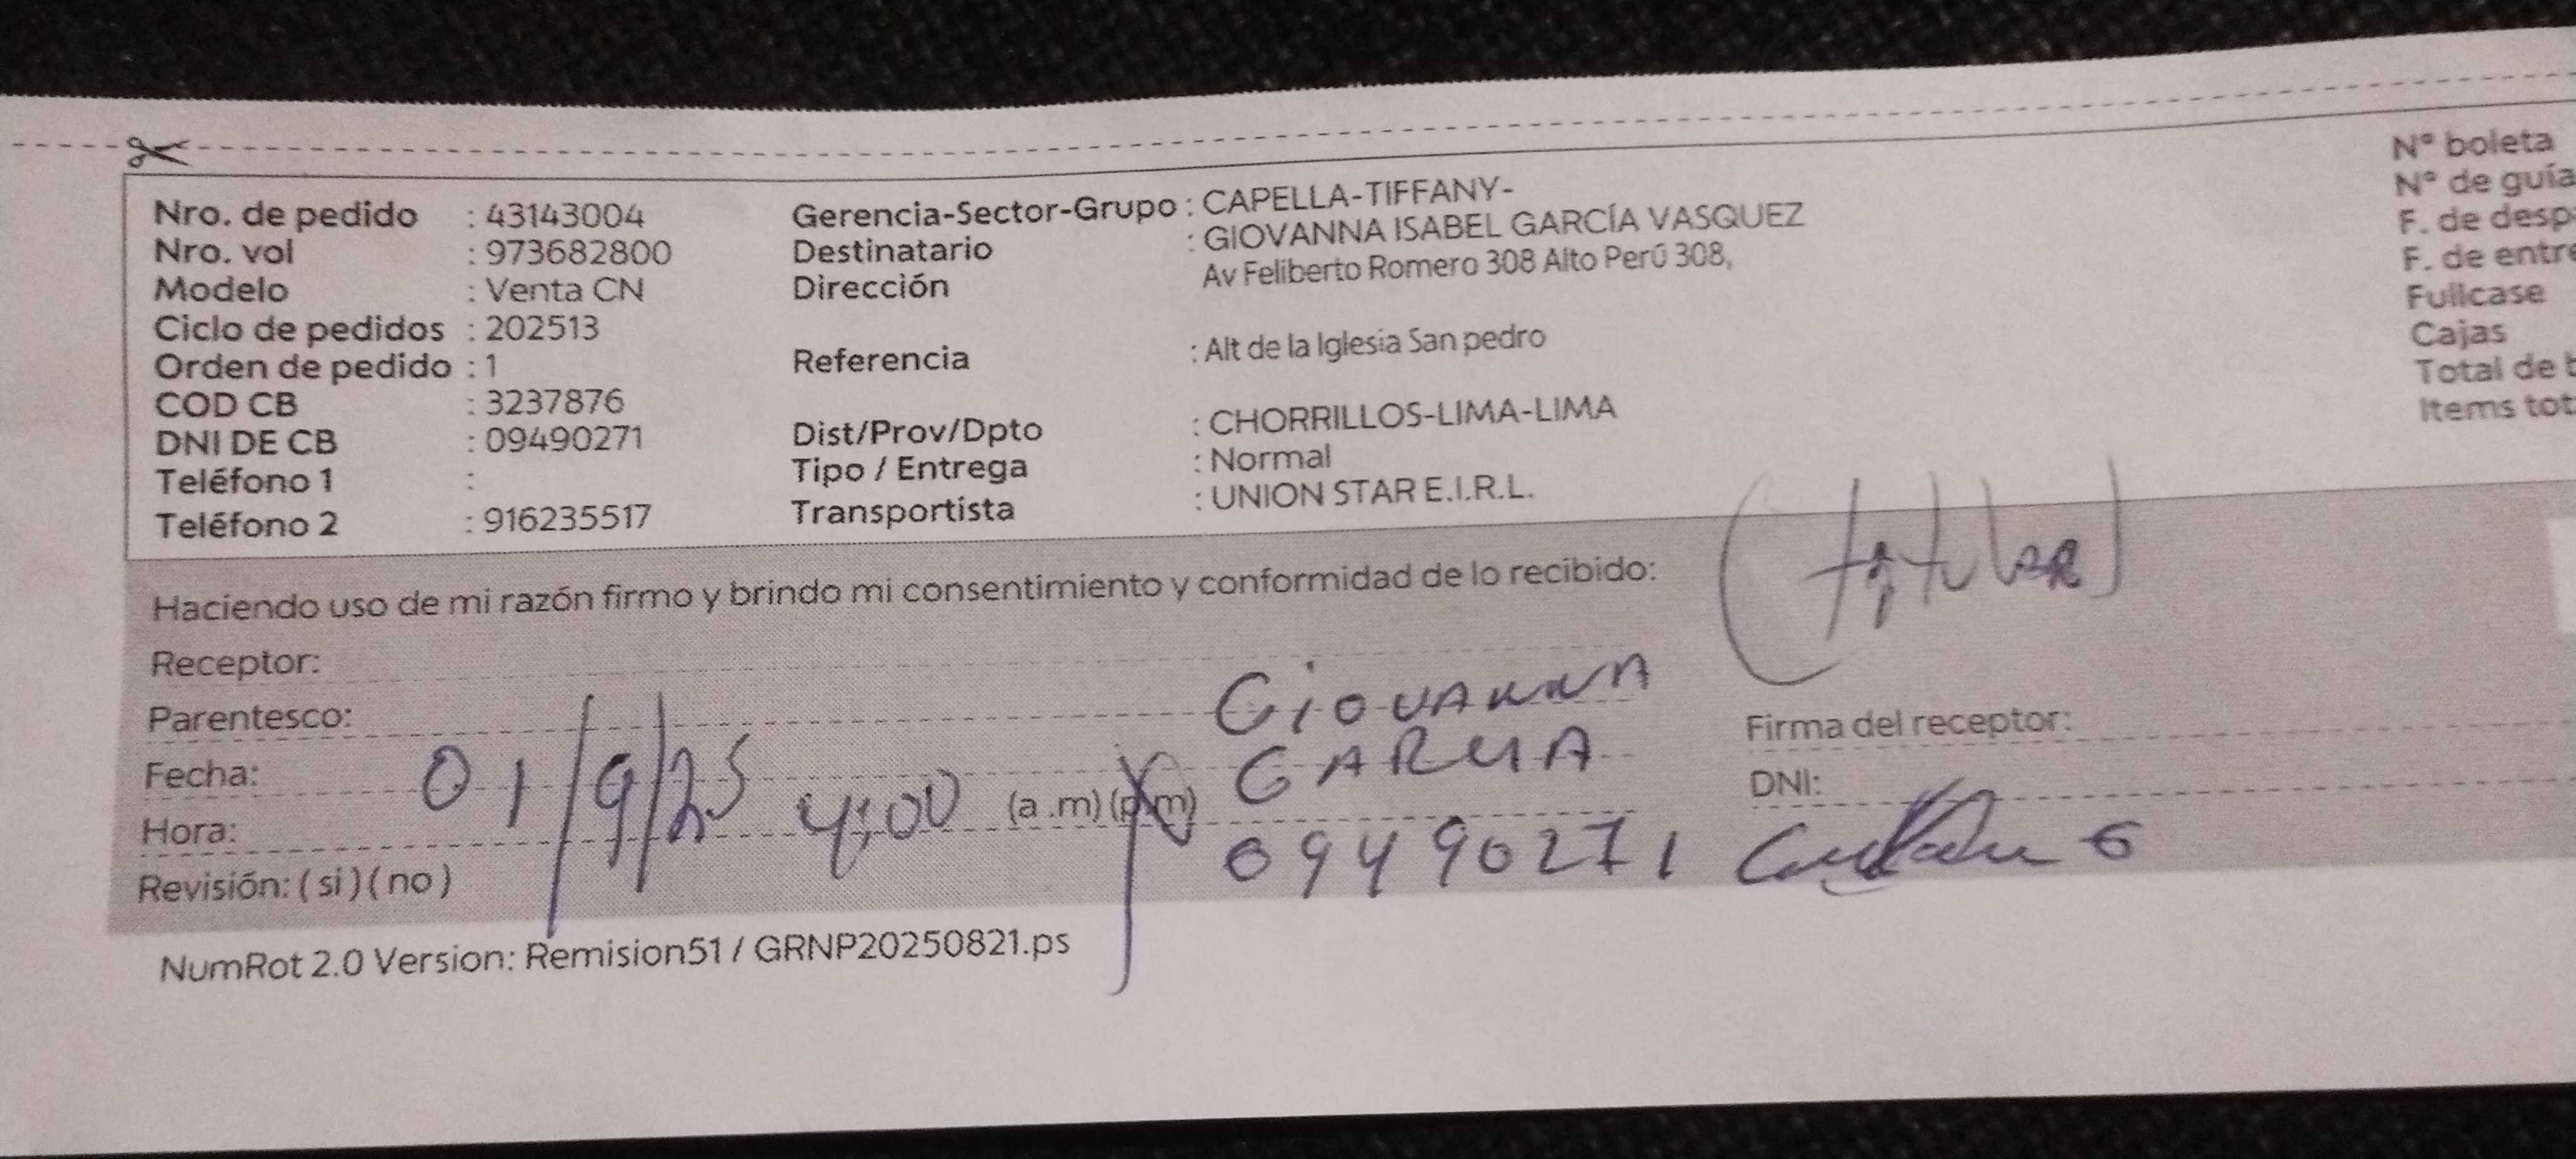 Nro. de pedido : 43143004
Nro. vol : 973682800
Modelo : Venta CN
Ciclo de pedidos : 202513
Orden de pedido : 1
COD CB : 3237876
DNI DE CB : 09490271
Teléfono 1 :
Teléfono 2 : 916235517
Gerencia-Sector-Grupo : CAPELLA-TIFFANY-
Destinatario : GIOVANNA ISABEL GARCÍA VASQUEZ
Dirección Av Feliberto Romero 308 Alto Perú 308,
Referencia : Alt de la Iglesia San pedro
Dist/Prov/Dpto : CHORRILLOS-LIMA-LIMA
Tipo / Entrega : Normal
Transportista : UNION STAR E.I.R.L.
N° boleta
N° de guía
F. de desp
F. de entre
Fullcase
Cajas
Total de b
Items tot
Haciendo uso de mi razón firmo y brindo mi consentimiento y conformidad de lo recibido:
(titular)
Receptor:
Parentesco:
Fecha: 01/9/25
Hora: 4:00 (a .m) (p.m)
Revisión: ( si ) ( no )
GIOVANNA
GARCIA
09490271
Firma del receptor:
DNI:
NumRot 2.0 Version: Remision51 / GRNP20250821.ps